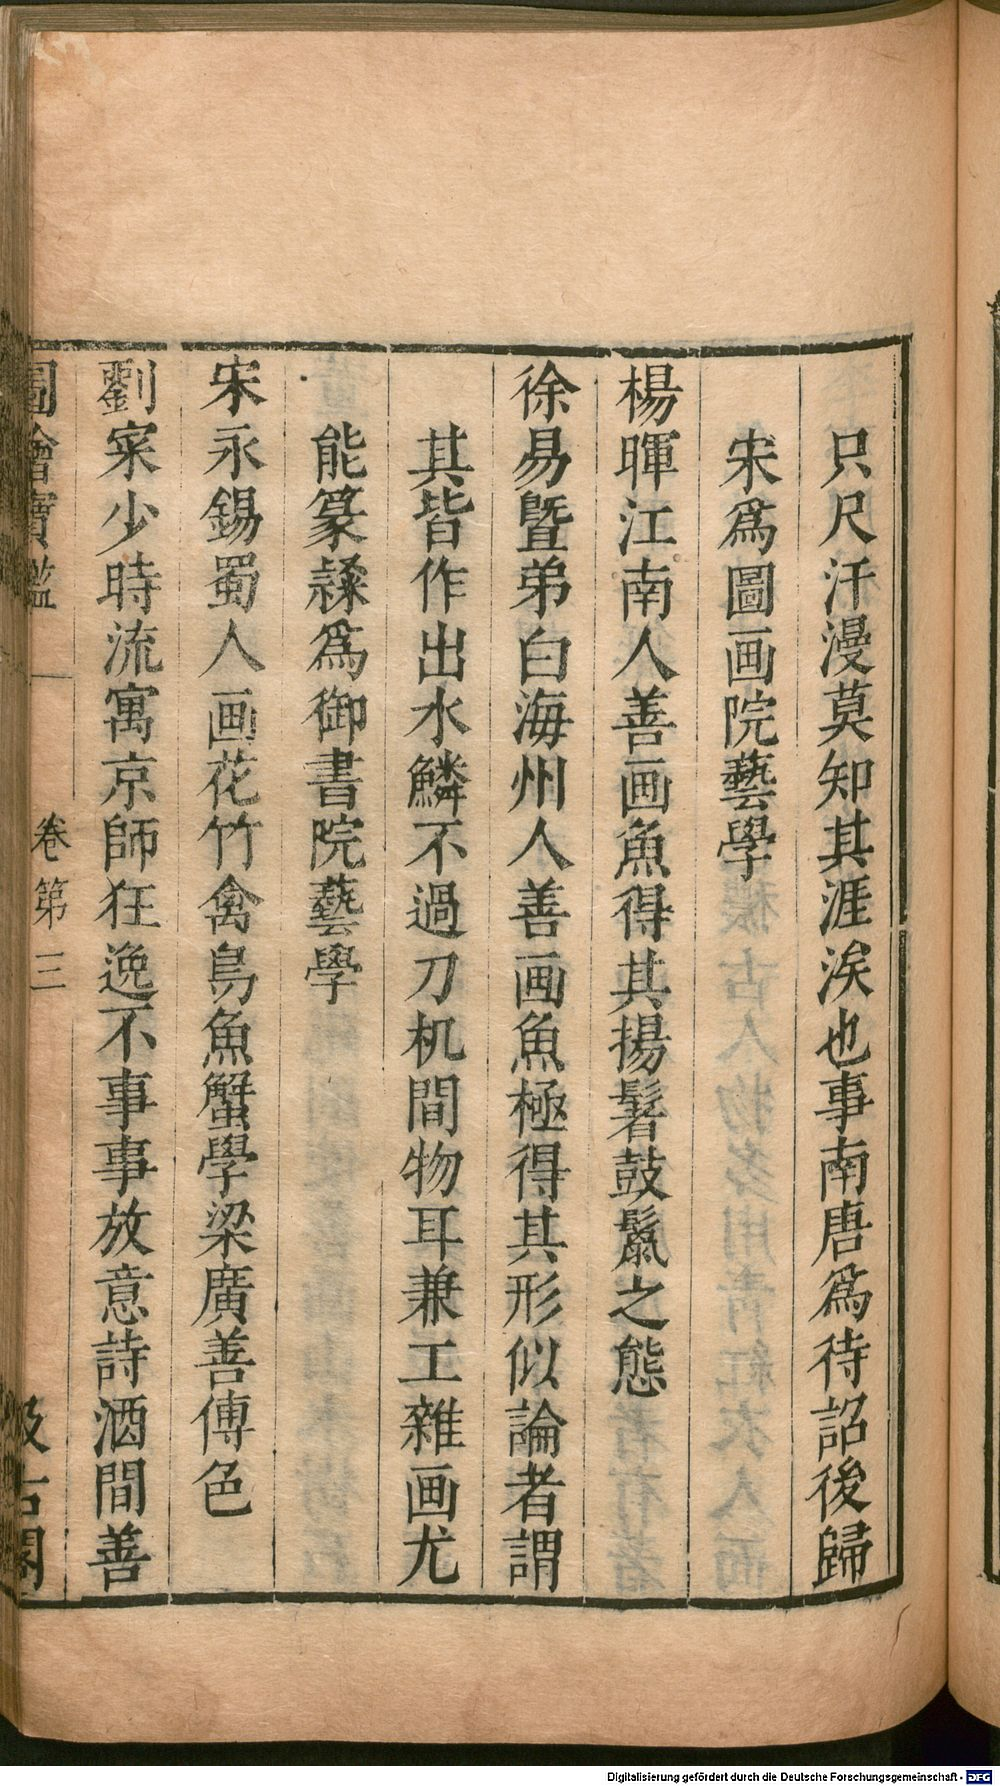 只尺汗漫莫知其涯涘也事南唐爲待詔後歸
宋爲圖画院藝學
楊暉江南人善画魚得其揚鬐鼓鬣之態
徐易暨弟白海州人善画魚極得其形似論者謂
其皆作出水鱗不過刀机間物耳兼工雜画尤
能篆隸爲御書院藝學
宋永錫蜀人画花竹禽鳥魚蟹學梁廣善傅色
劉寀少時流寓京師狂逸不事事放意詩酒間善
圖繪寶鑑 卷第三 汲古閣
Digitalisierung gefördert durch die Deutsche Forschungsgemeinschaft - DFG